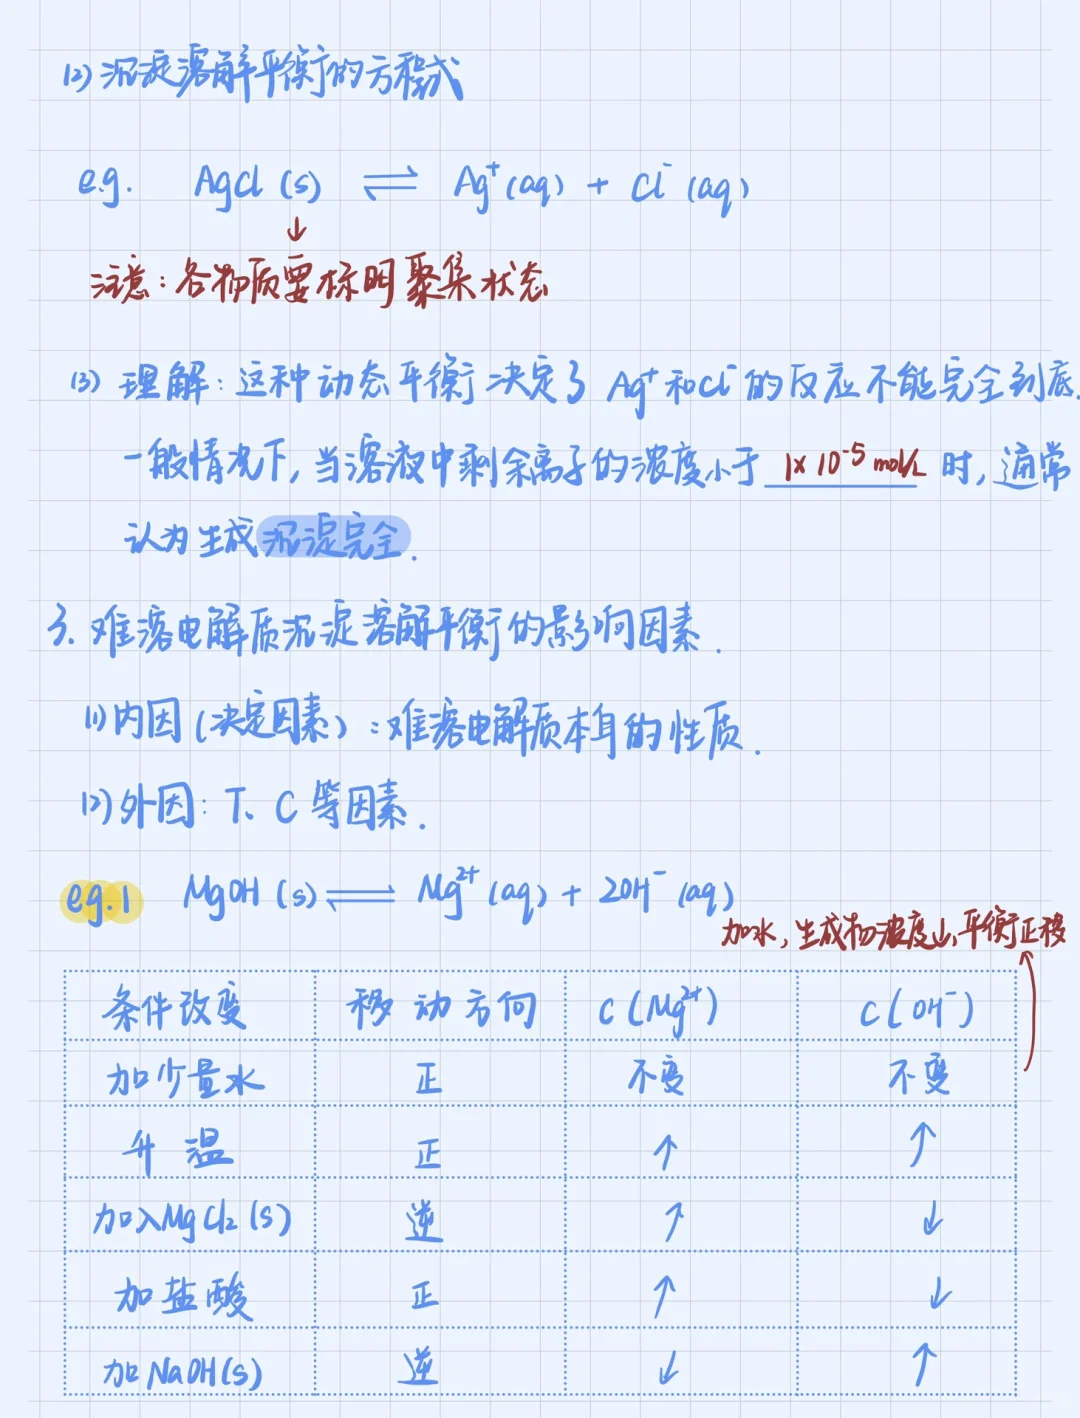 (2) 沉淀溶解平衡的方程式
e.g. AgCl (s) ⇌ Ag⁺(aq) + Cl⁻(aq)
↓
注意：各物质要标明聚集状态
(3) 理解：这种动态平衡决定了Ag⁺和Cl⁻的反应不能完全到底.
一般情况下, 当溶液中剩余离子的浓度小于 1×10⁻⁵ mol/L 时, 通常
认为生成沉淀完全.
3. 难溶电解质沉淀溶解平衡的影响因素.
(1) 内因 (决定因素)：难溶电解质本身的性质.
(2) 外因：T、C 等因素.
e.g.1 MgOH (s) ⇌ Mg²⁺(aq) + 2OH⁻(aq)
加水, 生成物浓度小, 平衡正移
条件改变 移动方向 C(Mg²⁺) C(OH⁻)
加少量水 正 不变 不变
升温 正 ↑ ↑
加入MgCl₂(s) 逆 ↑ ↓
加盐酸 正 ↑ ↓
加NaOH(s) 逆 ↓ ↑